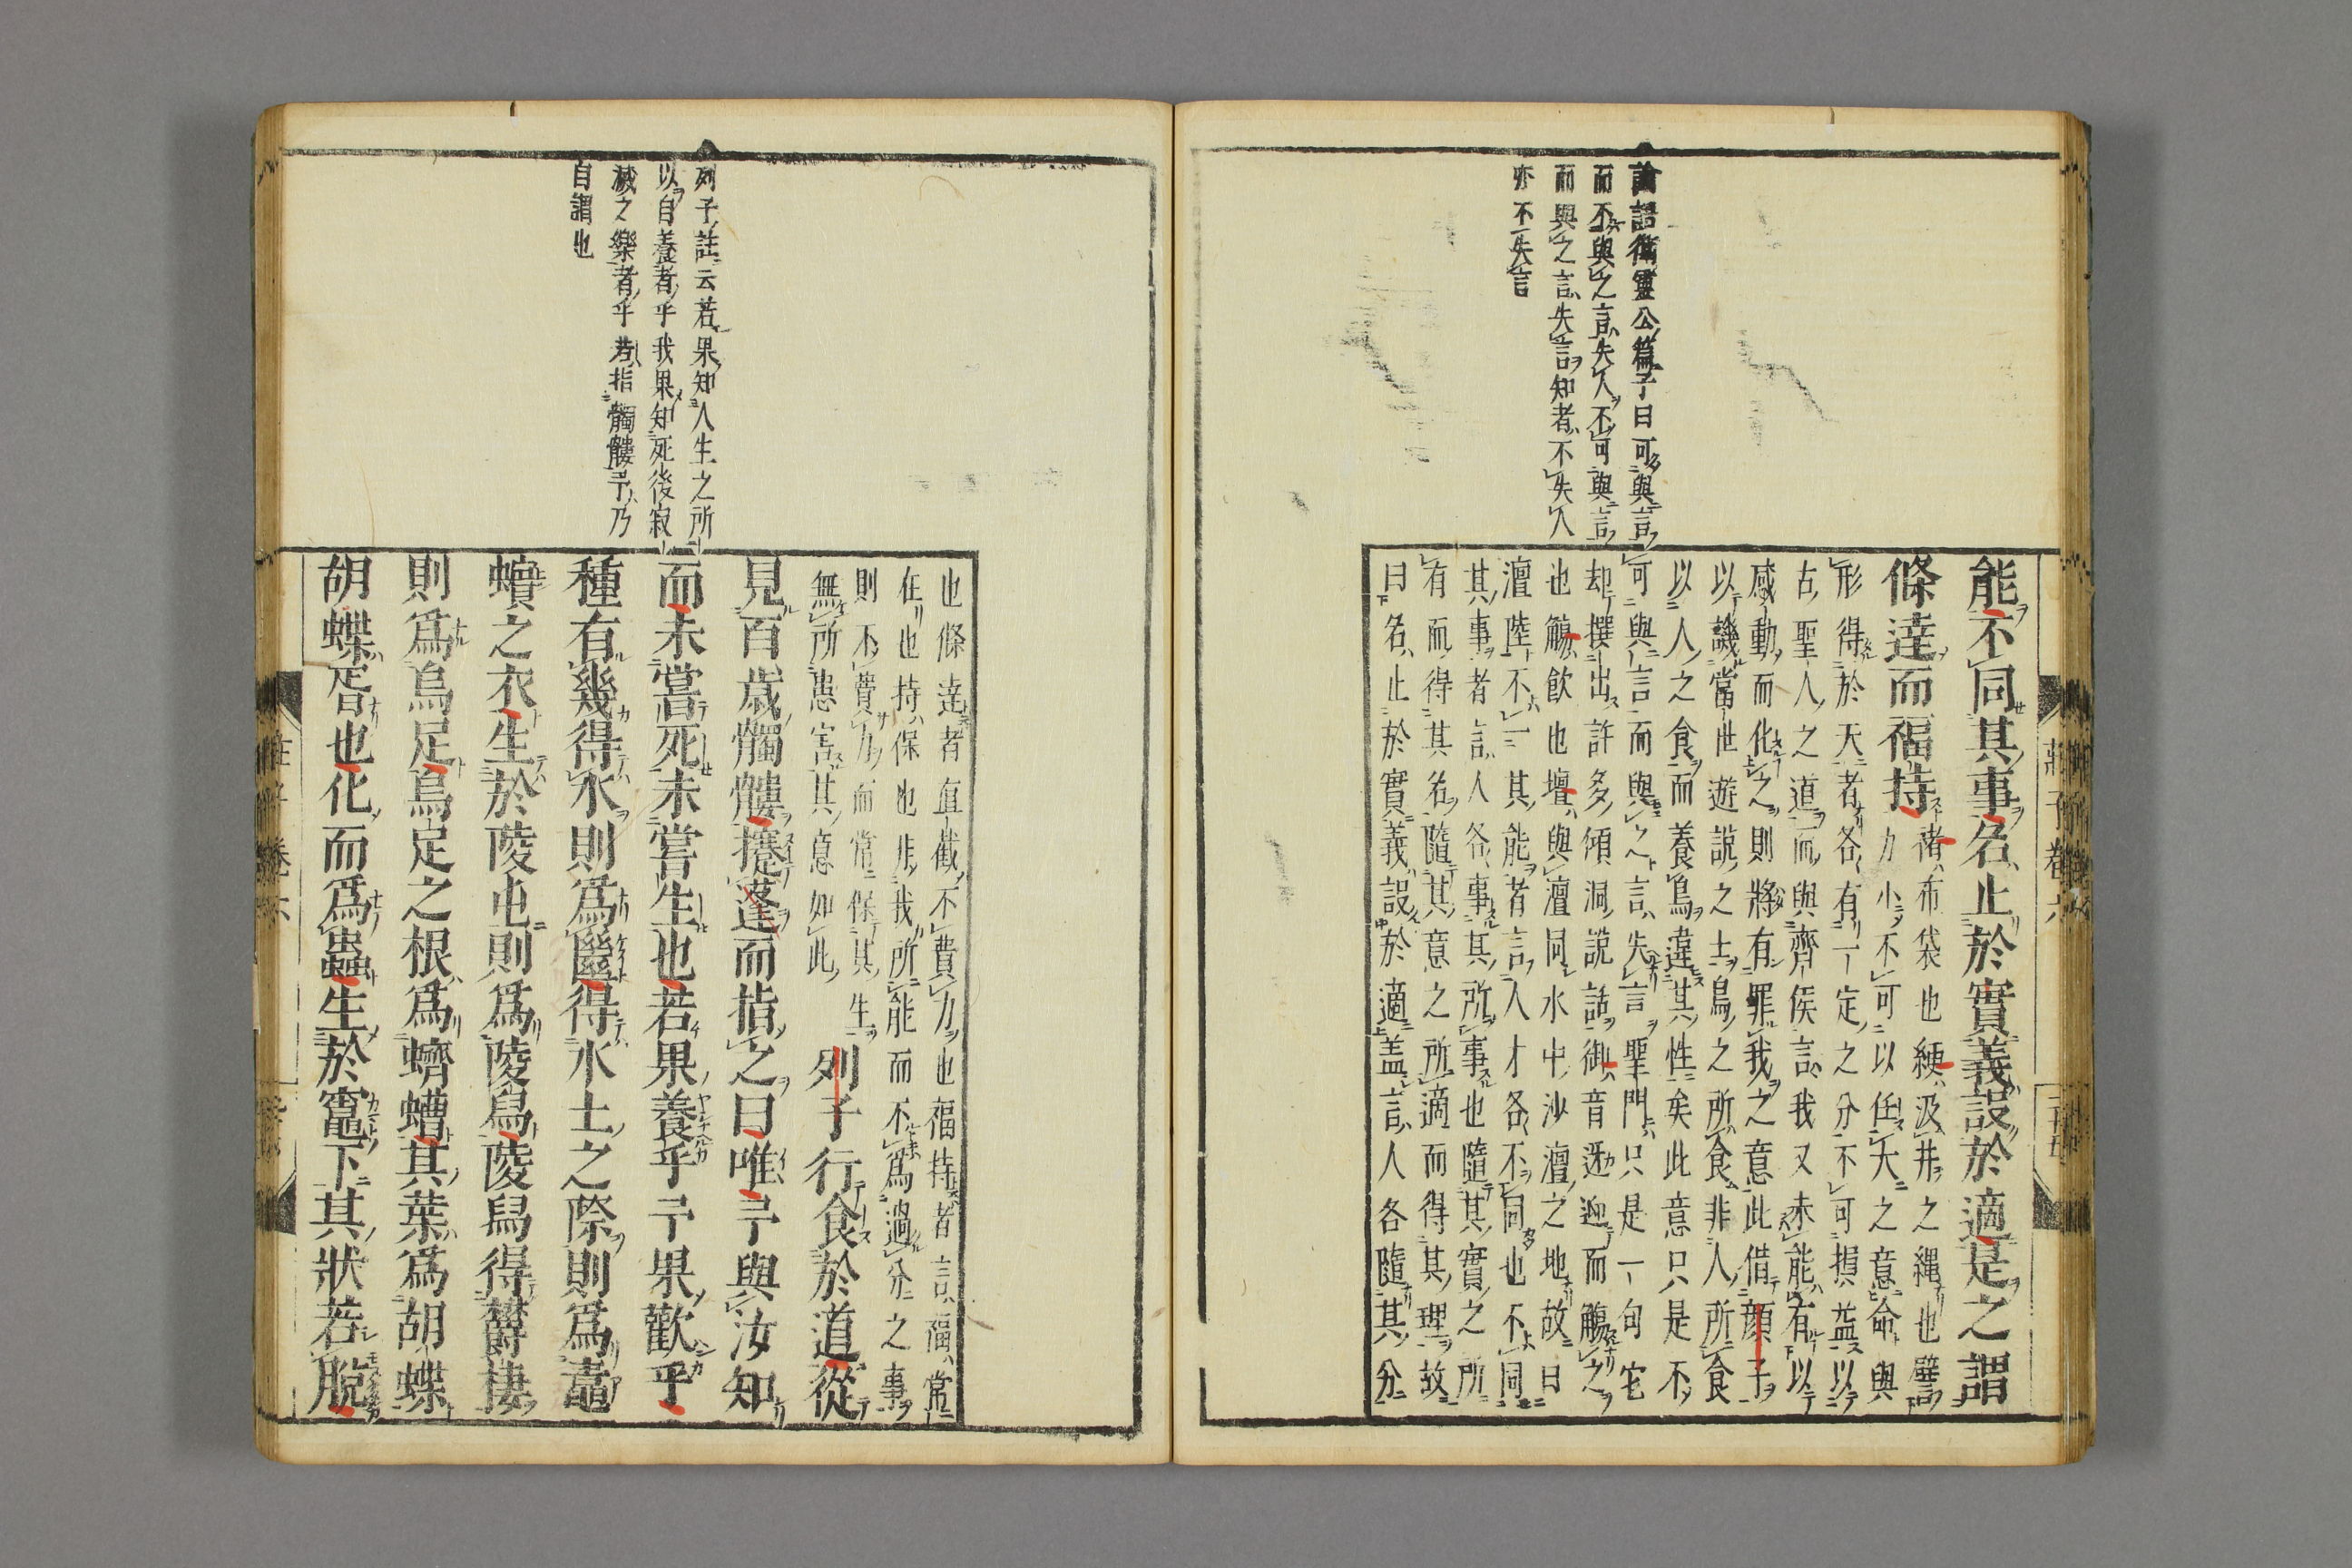 論語衛靈公篇子曰可與言
而不與之言失人不可與言
而與之言失言知者不失人
亦不失言
能不同其事名止於實義設於適是之謂
條達而福持
褚布袋也綆汲井之繩也譬
力小不可以任大之意命與
形得於天者各有一定之分不可損益以
古聖人之道而與齊侯言我又未能有以
感動而化之則將有罪我之意此借顔子
以譏當世遊說之士鳥之所食非人所食
以人之食而養鳥違其性矣此意只是不
可與言而與之言失言聖門只是一句它
却撰出許多傾洞說話御音迓迎而觴之
也觴飲也壇與澶同水中沙澶之地故曰
澶陸不一其能者言人才各不同也不同
其事者言人各事其所事也隨其實之所
有而得其名隨其意之所適而得其理故
曰名止於實義設於適盖言人各隨其分
莊子卷六
二十五
列子註云若果知人生之所
以自養者乎我果知死後寂
滅之樂者乎若指髑髏予乃
自謂也
也條達者直截不費力也福持者言福常
在也持保也非我所能而不爲過分之事
則不費力而常保其生
無所患害其意如此
列子行食於道從
見百歲髑髏攓蓬而指之曰唯予與汝知
而未嘗死未嘗生也若果養乎予果歡乎
種有幾得水則爲㡭得水土之際則爲鼃
蠙之衣生於陵屯則爲陵舄陵舄得欝棲
則爲烏足烏足之根爲蠐螬其葉爲胡蝶
胡蝶胥也化而爲蟲生於竈下其狀若脫